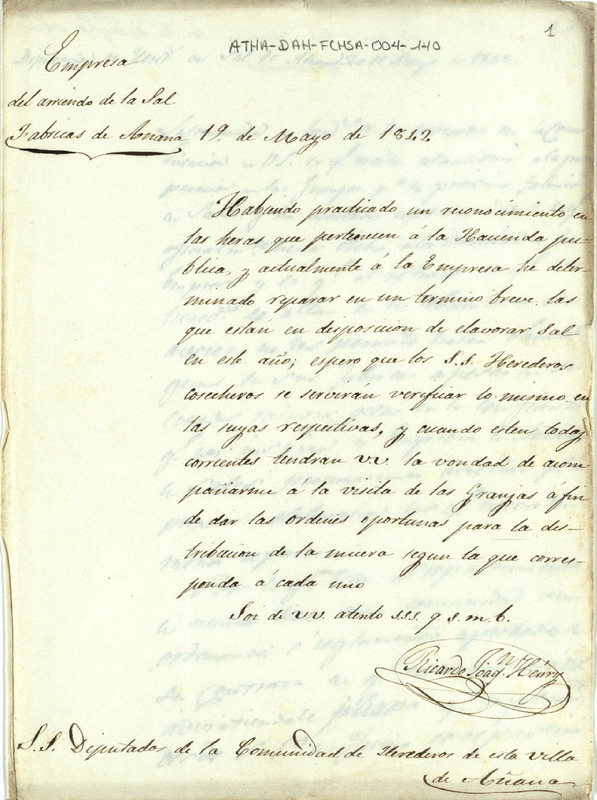 1
ATHA-DAH-FCHSA-004-140
Empresa
del arriendo de la Sal
Fabricas de Añana 19. de Mayo de 1842
Habiendo practicado un reconocimiento en
las heras que pertenecen á la Hacienda pu-
blica, y actualmente á la Empresa he deter-
minado reparar en un termino breve las
que estan en disposicion de elavorar Sal
en este año; espero que los S.S. Herederos
cosecheros se serviran verificar lo mismo en
las suyas respectivas, y cuando esten todas
corrientes tendran VV. la vondad de acom
pañarme á la visita de las Granjas á fin
de dar las ordenes oportunas para la dis-
tribucion de la muera segun la que corres-
ponda á cada uno
Soi de VV. atento s.s.s. q. s. m. b.
Ricardo Joaqn. Henry
S.S. Diputados de la Comunidad de Herederos de esta villa
de Añana